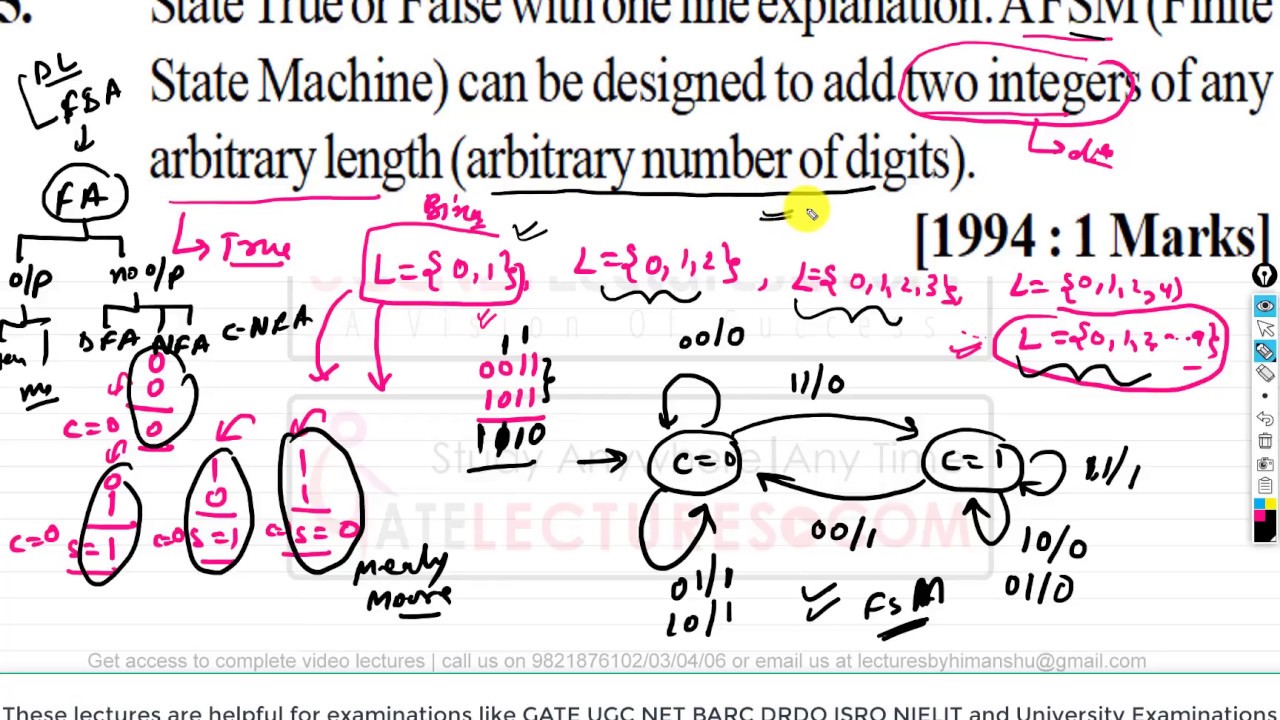 5. State True or False with one line explanation. A FSM (Finite
State Machine) can be designed to add two integers of any
arbitrary length (arbitrary number of digits).
[1994 : 1 Marks]
DL
FSA
FA
o/p no o/p
DFA NFA ε-NFA
True
L={0,1}, L={0,1,2}, L={0,1,2,3}, L={0,1,2,4}
L={0,1,2...9}
A Vision Of Success
1 1
0011
1011
1110
0
0
c=0 0
0
1
c=0 s=1
1
0
c=0 s=1
1
1
s=0
Mealy
Moore
00/0
11/0
c=0
c=1
11/1
00/1
10/0
01/0
01/1
10/1
FSM
Study Anywhere Any Time
GATELECTURES.COM
Get access to complete video lectures | call us on 9821876102/03/04/06 or email us at lecturesbyhimanshu@gmail.com
These lectures are helpful for examinations like GATE UGC NET BARC DRDO ISRO NIELIT and University Examinations